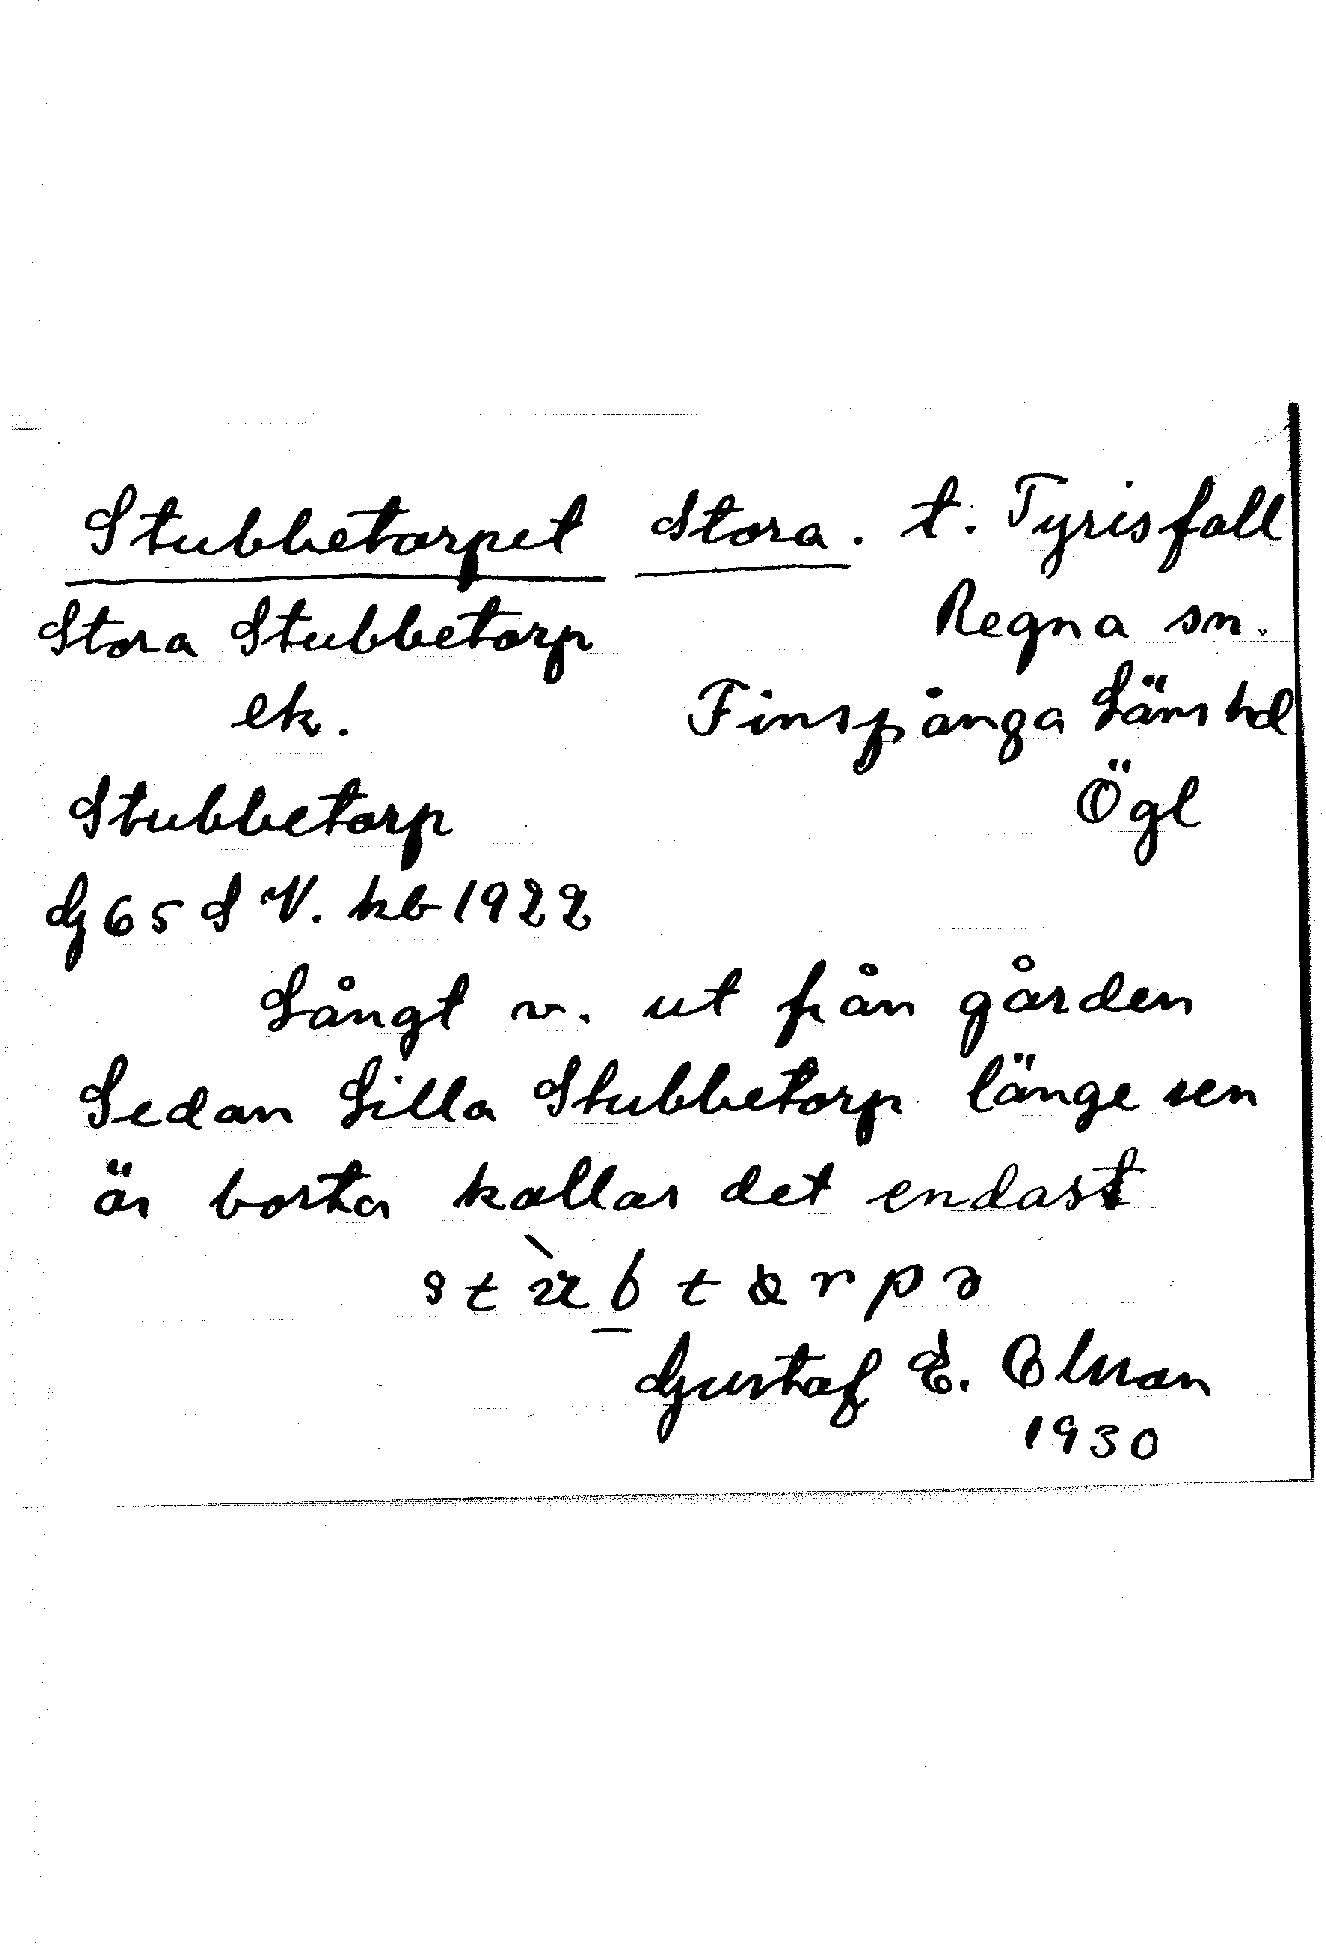 Stubbetorpet Stora. t. Tyrisfall
Stora Stubbetorp Regna sn.
ek. Finspånga Läns hd
Stubbetorp Ögl
G 65 S V. kb 1922
Långt v. ut från gården
Sedan Lilla Stubbetorp länge sen
är borta kallas det endast
Gustaf E. Olsson
1930